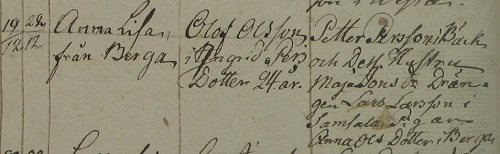 19 28
12 12
Anna Lisa
från Berga
Olof Olsson
Ingrid Pers
Dotter 24 år.
Petter Persson i Bäck
och Dess Hustru
Maja Jons Dr Drän-
gen Lars Larsson i
Samsala
Anna Ols Dotter i Berga